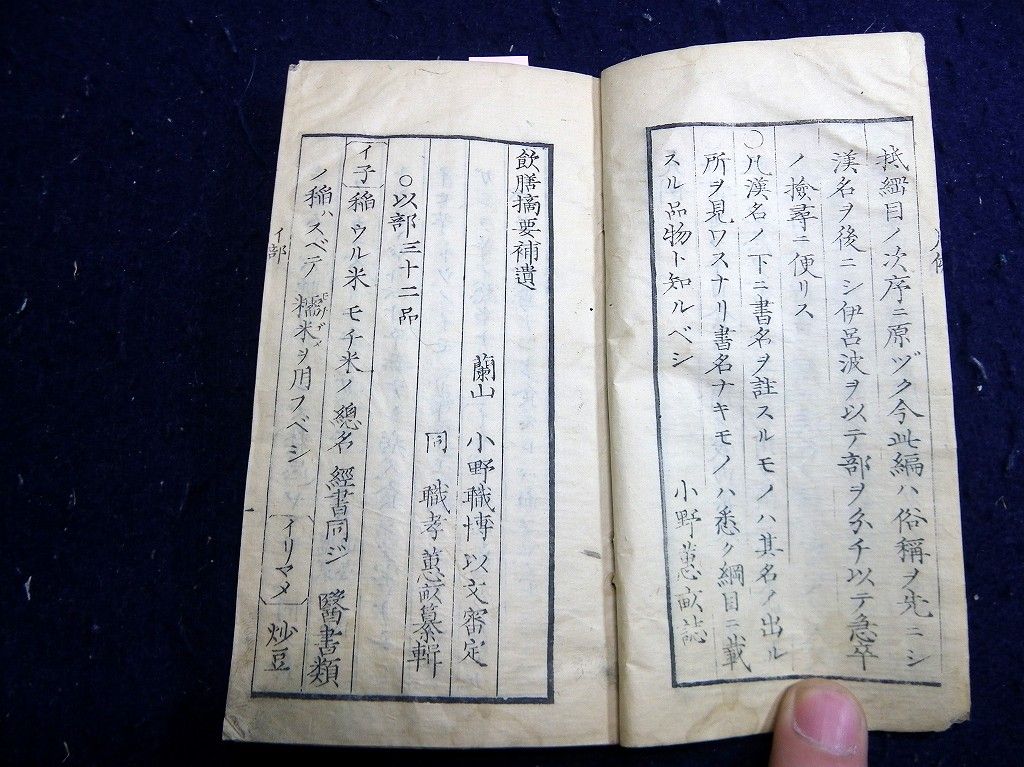 抵綱目ノ次序ニ原ヅク今此編ハ俗稱ヲ先ニシ
漢名ヲ後ニシ伊呂波ヲ以テ部ヲ分チ以テ急卒
ノ撿尋ニ便リス
○凡漢名ノ下ニ書名ヲ註スルモノハ其名ノ出ル
所ヲ見ワスナリ書名ナキモノハ悉ク綱目ニ載
スル品物ト知ルベシ
小野蕙畝誌
飲膳摘要補遺
蘭山 小野職博以文審定
同 職孝蕙畝纂輯
○以部三十二品
イ子 稲 ウル米 モチ米ノ總名 經書同ジ 醫書類
ノ稲ハスベテ糯米ヲ用フベシ イリマメ 炒豆
イ部